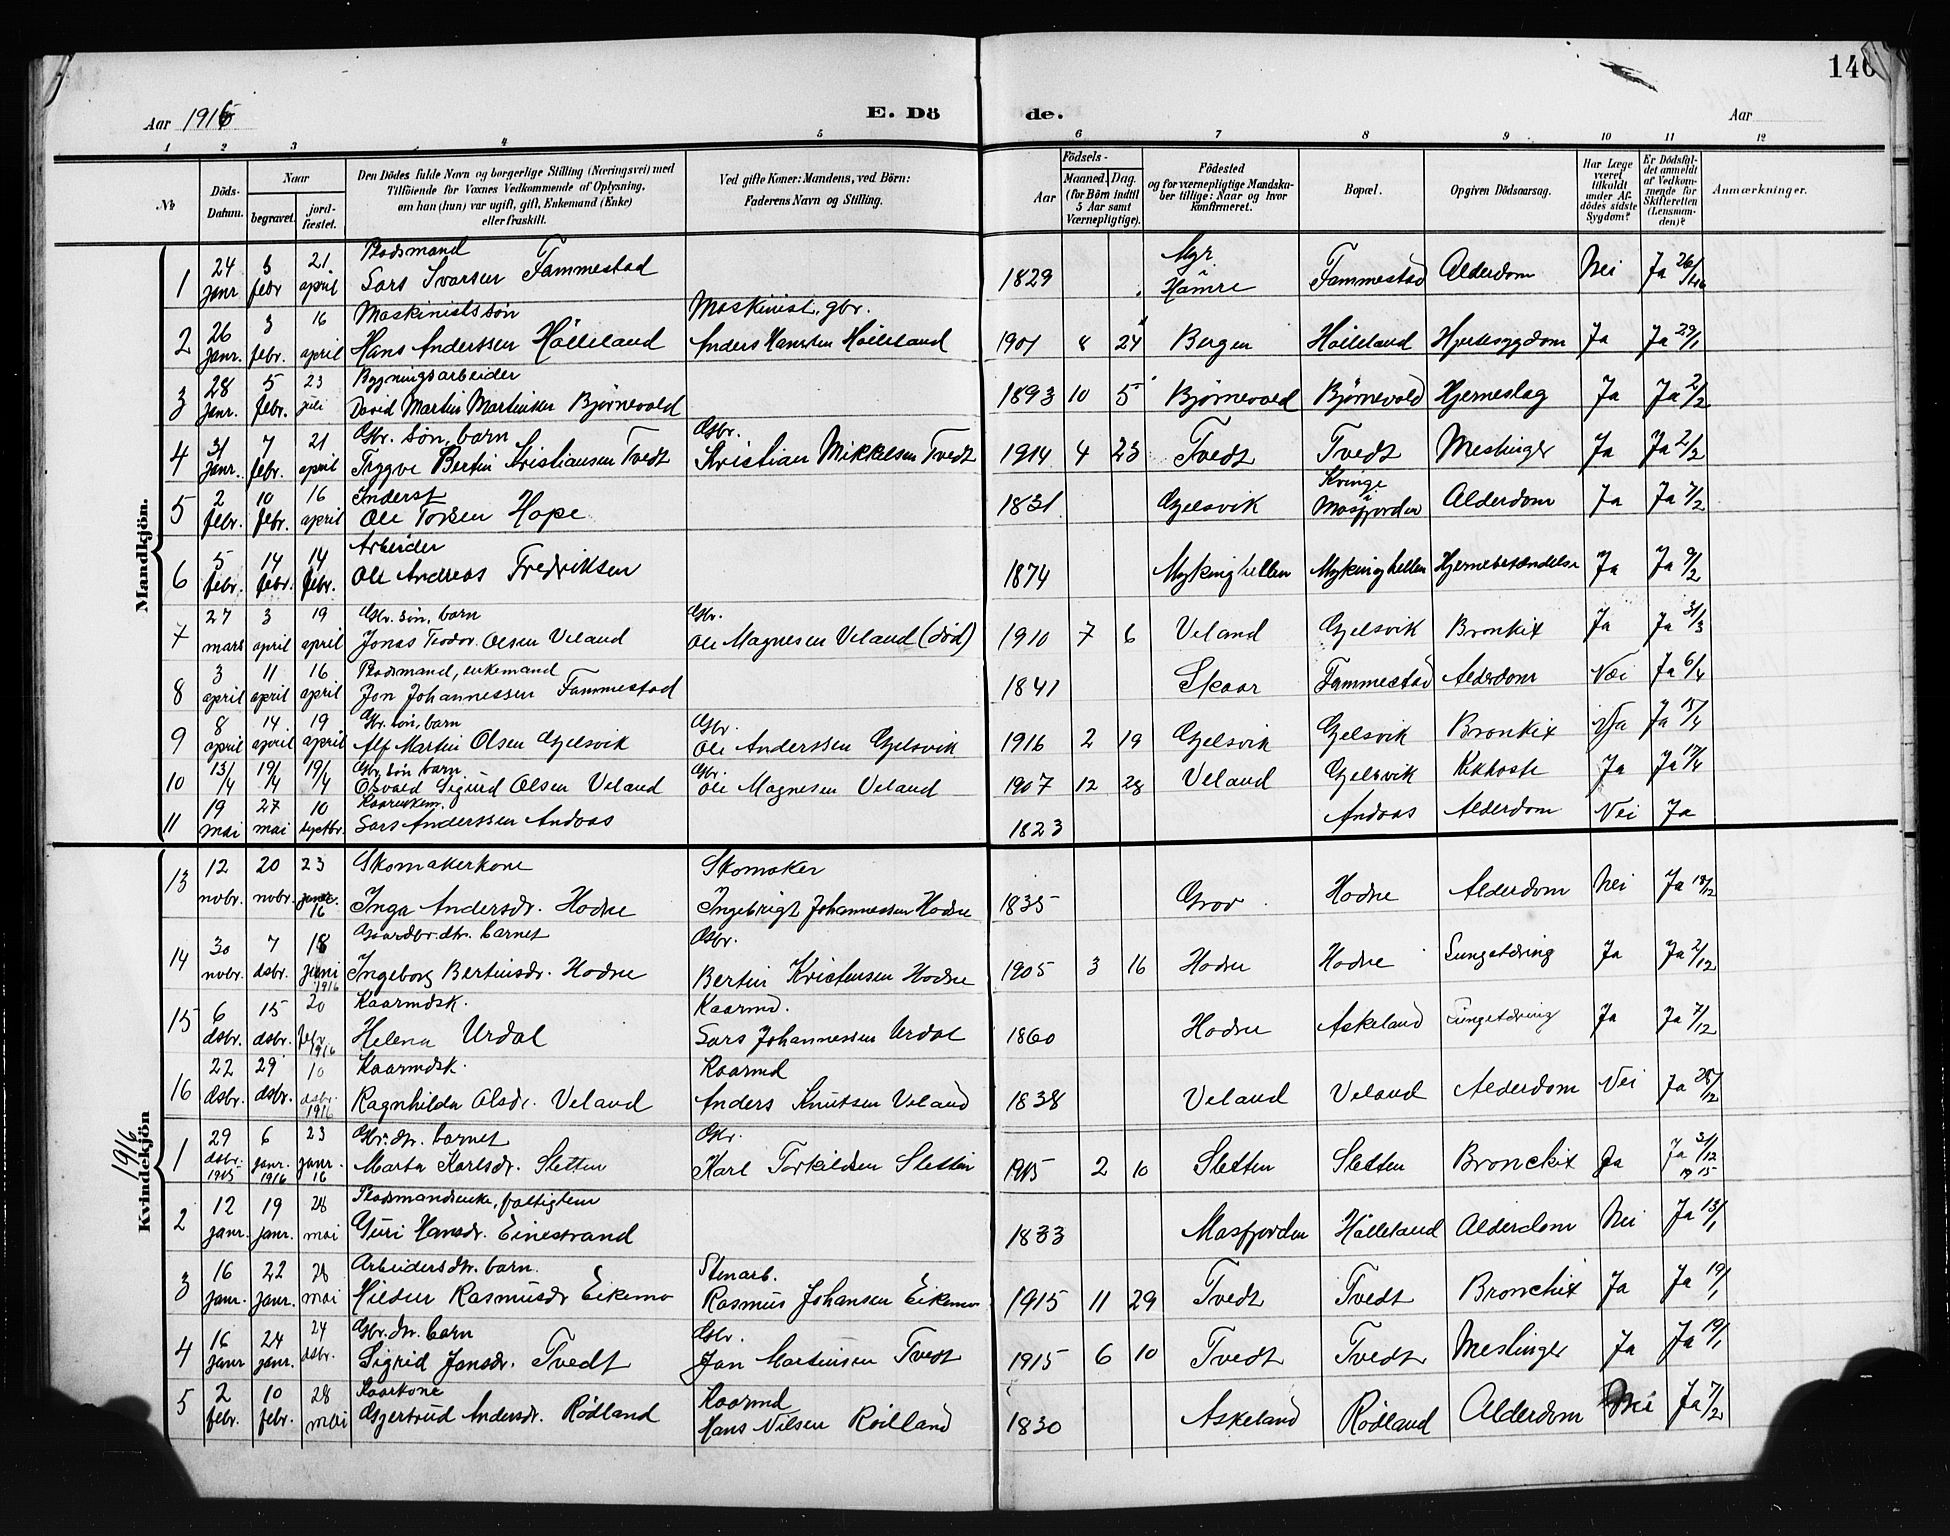 140
Aar 1916 E. Dö de. Aar
1 2 3 4 5 6 7 8 9 10 11 12
№ Döds-Datum. Naar begravet. jord-fæstet. Den Dödes fulde Navn og borgerlige Stilling (Næringsvei) med Tilföiende for Voxnes Vedkommende af Oplysning, om han (hun) var ugift, gift, Enkemand (Enke) eller fraskilt. Ved gifte Koner: Mandens, ved Börn: Faderens Navn og Stilling. Födsels- Aar Maaned. Dag. (for Börn indtil 5 Aar samt Værnepligtige). Födested og for værnepligtige Mandska-ber tillige: Naar og hvor konfirmeret. Bopæl. Opgiven Dödsaarsag. Har Læge været tilkaldt under Af-dödes sidste Sygdom? Er Dödsfal-det anmeldt af Vedkom-mende for Skifteretten (Lensman-den)? Anmærkninger.
Mandkjön.
1 24 janr 3 febr 21 april Pladsmand Lars Ivarsen Fammestad 1829 Myr i Hamre Fammestad Alderdom Nei Ja 26/1
2 26 janr. 3 febr. 16 april Maskinistssøn Hans Anderssen Hølleland Maskinist, gbr. Anders Hansen Hølleland 1901 8 24 Bergen Hølleland Hjertesygdom Ja Ja 29/1
3 28 janr. 5 febr. 23 juli Bygningsarbeider David Martin Martinsen Bjørnevold 1893 10 5 Bjørnevold Bjørnevold Hjerneslag Ja Ja 2/2
4 31 janr. 7 febr. 21 april Gbr. søn, barn Trygve Bertin Kristiansen Tvedt Gbr. Kristian Mikkelsen Tvedt 1914 4 23 Tvedt Tvedt Meslinger Ja Ja 2/2
5 2 febr. 10 febr. 16 april Inderst Ole Torsen Hope 1831 Gjelsvik Kvinge i Masfjorden Alderdom Ja Ja 7/2
6 5 febr. 14 febr. 14 febr. Arbeider Ole Andreas Fredriksen 1874 Mykinghellen Mykinghellen Hjernebetændelse Ja Ja 9/2
7 27 mars 3 april 19 april Gbr. søn, barn Jonas Teodor Olsen Veland Gbr. Ole Magnesen Veland (død) 1910 7 6 Veland Gjelsvik Bronkit Ja Ja 31/3
8 3 april 11 april 16 april Pladsmand, enkemand Jon Johannessen Fammestad 1841 Skaar Fammestad Alderdom Nei Ja 6/4
9 8 april 14 april 19 april Gbr. søn, barn Alf Martin Olsen Gjelsvik Gbr. Ole Anderssen Gjelsvik 1916 2 19 Gjelsvik Gjelsvik Bronkit Ja Ja 15/4
10 13/4 19/4 19/4 Gbr. søn barn Osvald Sigurd Olsen Veland Gbr. Ole Magnesen Veland 1907 12 28 Veland Gjelsvik Kikhoste Ja Ja 17/4
11 19 mai 27 mai 10 septbr. Kaarenkem. Lars Anderssen Andvas 1823 Andvas Alderdom Nei Ja
13 12 novbr. 20 novbr. 23 janr. 16 Skomakerkone Inga Andersdr. Hodne Skomaker Ingebrigt Johannessen Hodne 1835 Grov Hodne Alderdom Nei Ja 18/12
14 30 novbr. 7 dsbr. 18 juni 1916 Gaardbr. dtr. barnet Ingeborg Bertinsdr. Hodne Gbr. Bertin Kristensen Hodne 1905 3 16 Hodne Hodne Lungetæring Ja Ja 2/12
15 6 dsbr. 15 dsbr. 20 febr. 1916 Kaarmdsk. Helena Urdal Kaarmd. Lars Johannessen Urdal 1860 Hodne Askeland Lungetæring Ja Ja 7/12
16 22 dsbr. 29 dsbr. 10 dsbr. 1916 Kaarmdsk. Ragnhilda Olsdr. Veland Kaarmd Anders Knutsen Veland 1838 Veland Veland Alderdom Nei Ja 28/12
1916
Kvindekjön
1 29 dsbr. 1915 6 janr. 1916 23 janr. 16 Gbr. dtr. barnet Marta Karlsdr. Sletten Gbr. Karl Torkildsen Sletten 1915 2 10 Sletten Sletten Bronchit Ja Ja 31/12 1915
2 12 janr. 19 janr. 28 mai Pladsmandsenke, fattiglem Guri Hansdr. Einestrand 1833 Masfjorden Hølleland Alderdom Nei Ja 13/1
3 16 janr. 22 janr. 28 mai Arbeidersdtr. barn. Hildur Rasmusdr Eikemo Stenarb. Rasmus Johansen Eikemo 1915 11 29 Tvedt Tvedt Bronchit Ja Ja 19/1
4 16 janr 24 janr. 24 dsbr. Gbr. dtr. barn Sigrid Jansdr. Tvedt Gbr. Jan Martinsen Tvedt 1915 6 10 Tvedt Tvedt Meslinger Ja Ja 19/1
5 2 febr. 10 febr. 28 mai Kaarkone Gjertrud Andersdr. Rødland Kaarmd Hans Nilsen Rødland 1830 Askeland Rødland Alderdom Nei Ja 7/2